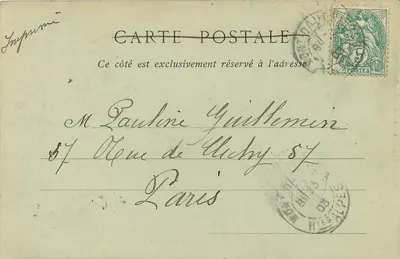 Imprimé
CARTE POSTALE
Ce côté est exclusivement réservé à l'adresse
M Pauline Guillemin
57 Rue de Clichy 57
Paris
5
03
Htes ALPES